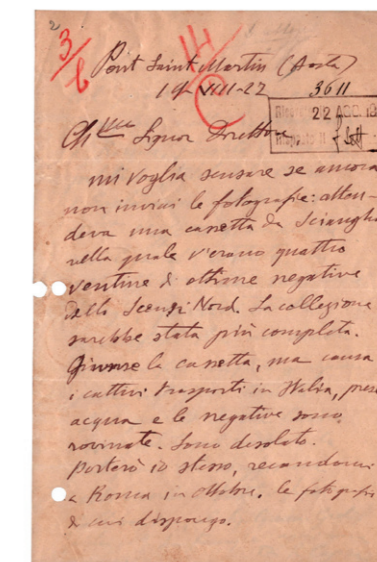 2
3/6
Pont Saint Martin (Aosta)
19-VIII-27
3611
22 AGO. 19
Ch.mo Signor Direttore
mi voglia scusare se ancora
non inviai le fotografie: atten-
devo una cassetta da Scianghi
nella quale v'erano quattro
ventine di ottime negative
dello Scensi Nord. La collezione
sarebbe stata più completa.
Giunse la cassetta, ma causa
i cattivi trasporti in Italia, prese
acqua e le negative sono
rovinate. Sono desolato.
Porterò io stesso, recandomi
a Roma in ottobre, le fotografie
di cui dispongo.